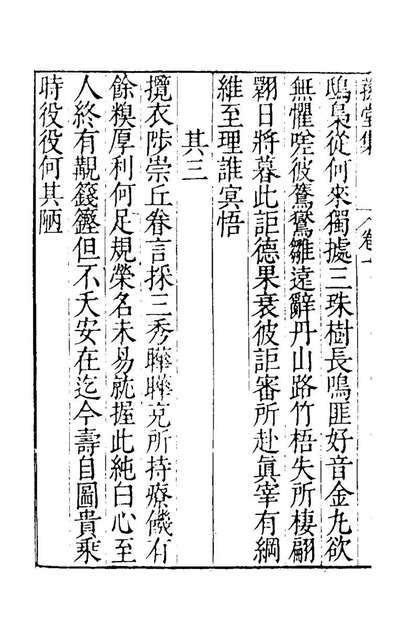 堂集 卷
鴟梟從何來獨據三珠樹長鳴匪好音金丸欲
無懼嗟彼鸑鷟雛遠辭丹山路竹梧失所棲翩
翾日將暮此詎德果衰彼詎審所赴眞宰有綱
維至理誰冥悟
其三
攬衣陟崇丘眷言採三秀曄曄克所持療饑有
餘糗厚利何足規榮名未易就握此純白心至
人終有覯籛鏗但不夭安在迄今壽自圖貴乘
時役役何其陋